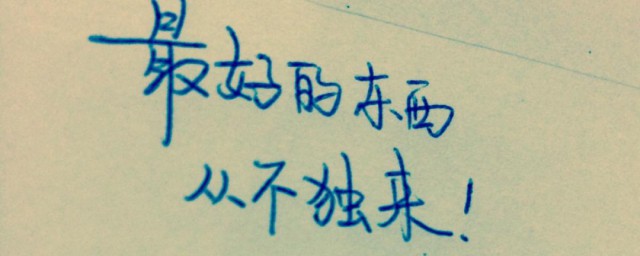 最好的东西
从不独来!